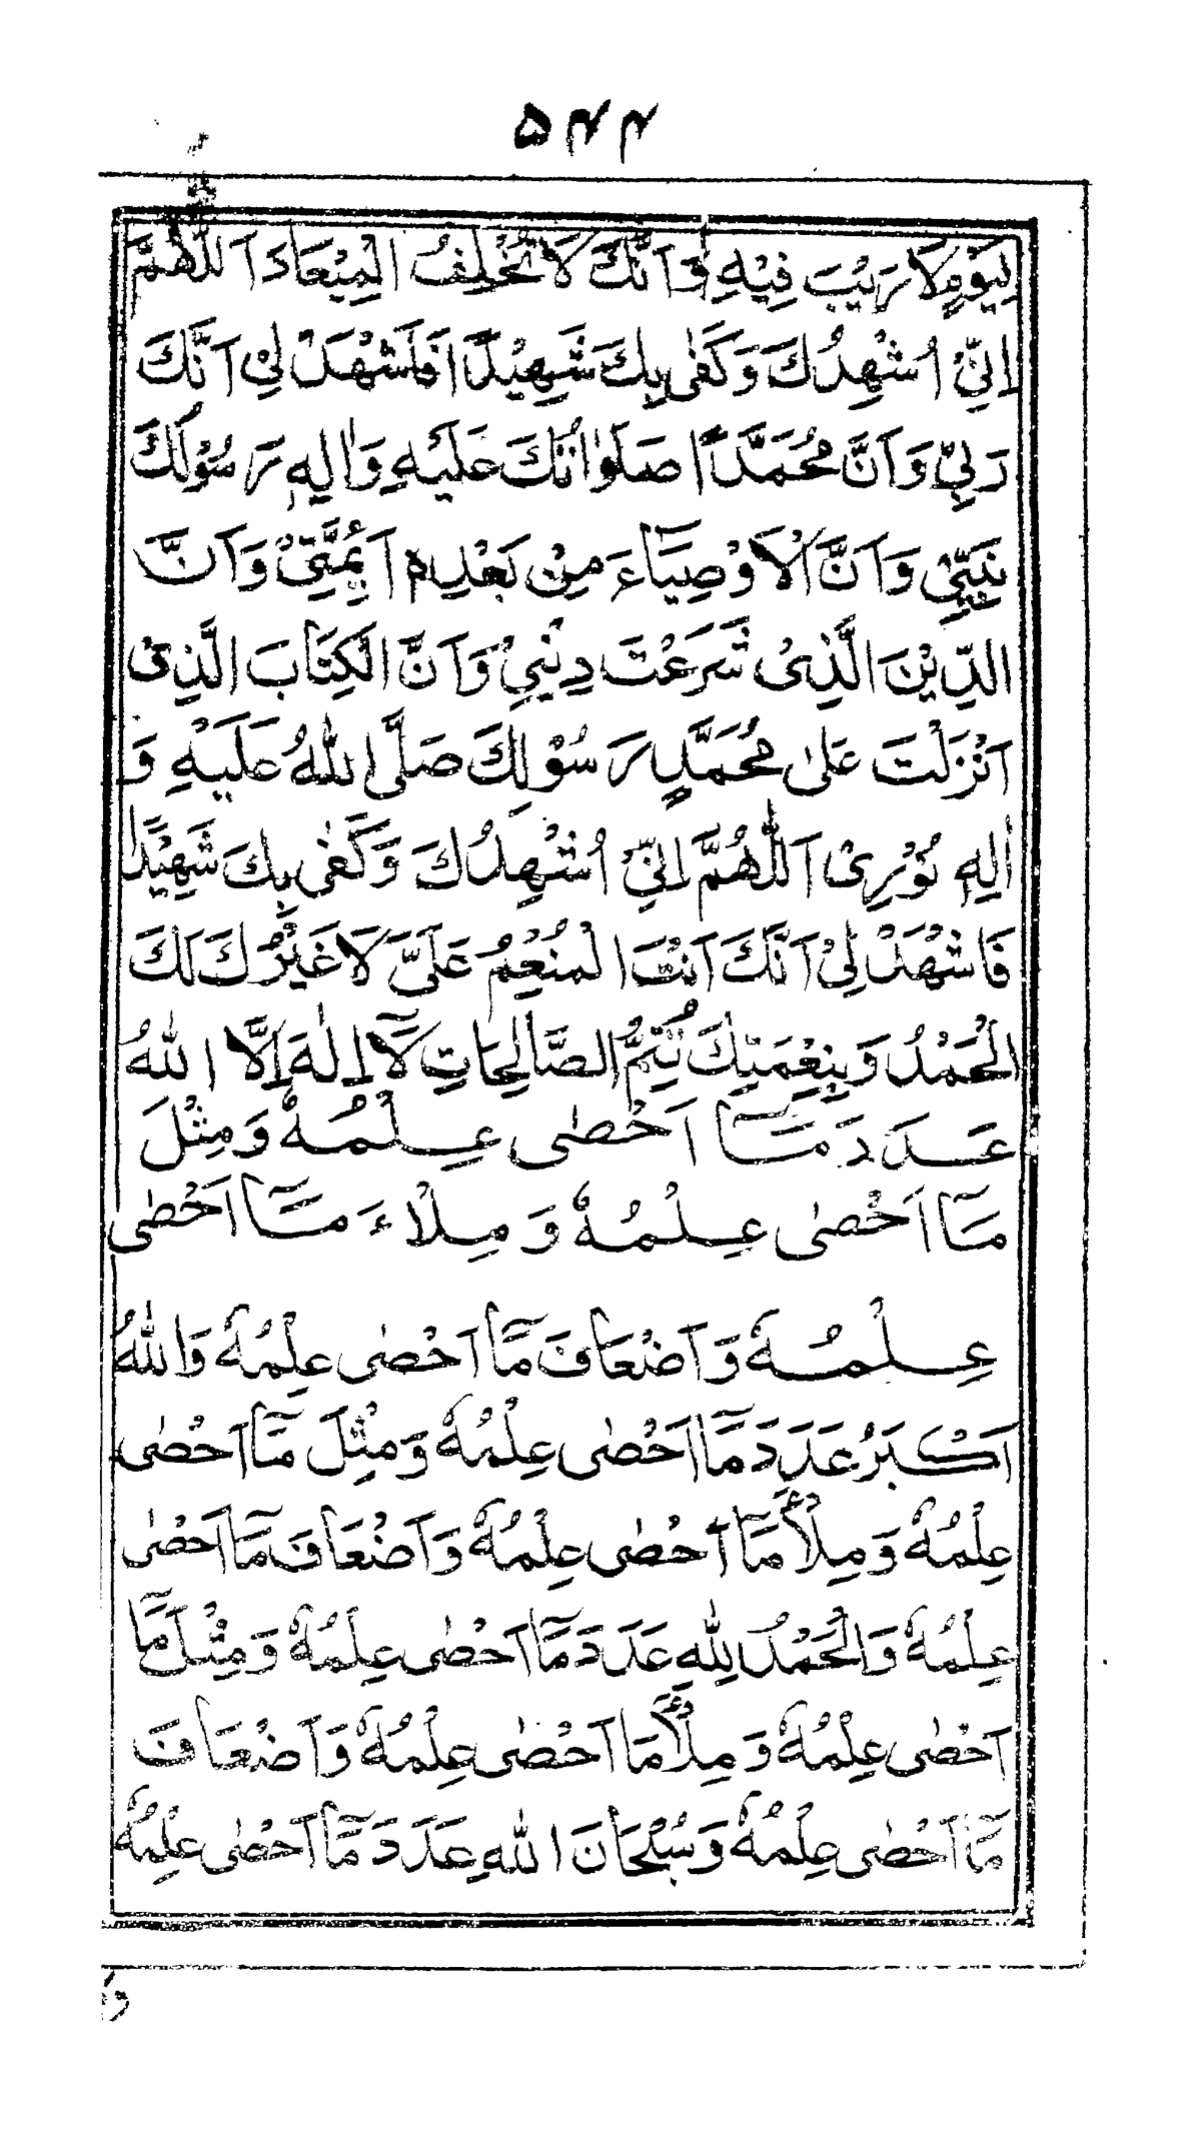 ۵۴۴
لِيَوْمٍ لَا رَيْبَ فِيْهِ وَاَنَّكَ لَا تُخْلِفُ الْمِيْعَادَ اَللّٰهُمَّ
اِنِّيْ اُشْهِدُكَ وَكَفٰى بِكَ شَهِيْدًا فَاشْهَدْ لِيْ اَنَّكَ
رَبِّيْ وَاَنَّ مُحَمَّدًا صَلَوٰاتُكَ عَلَيْهِ وَاٰلِهٖ رَسُوْلُكَ
نَبِيِّيْ وَاَنَّ الْاَوْصِيَآءَ مِنْ بَعْدِهٖ اَئِمَّتِيْ وَاَنَّ
الدِّيْنَ الَّذِىْ شَرَعْتَ دِيْنِيْ وَاَنَّ الْكِتَابَ الَّذِىْ
اَنْزَلْتَ عَلٰى مُحَمَّدٍ رَسُوْلِكَ صَلَّى اللّٰهُ عَلَيْهِ وَ
اٰلِهٖ نُوْرِىْ اَللّٰهُمَّ اِنِّيْ اُشْهِدُكَ وَكَفٰى بِكَ شَهِيْدًا
فَاشْهَدْ لِيْ اَنَّكَ اَنْتَ الْمُنْعِمُ عَلَيَّ لَا غَيْرُكَ لَكَ
الْحَمْدُ وَبِنِعْمَتِكَ تَتِمُّ الصَّالِحَاتِ لَآ اِلٰهَ اِلَّا اللّٰهُ
عَدَدَ مَآ اَحْصٰى عِلْمُهٗ وَمِثْلَ
مَآ اَحْصٰى عِلْمُهٗ وَمِلْاءَ مَآ اَحْصٰى
عِلْمُهٗ وَاَضْعَافَ مَآ اَحْصٰى عِلْمُهٗ وَاللّٰهُ
اَكْبَرُ عَدَدَ مَآ اَحْصٰى عِلْمُهٗ وَمِثْلَ مَآ اَحْصٰى
عِلْمُهٗ وَمِلْأَ مَآ اَحْصٰى عِلْمُهٗ وَاَضْعَافَ مَآ اَحْصٰى
عِلْمُهٗ وَالْحَمْدُ لِلّٰهِ عَدَدَ مَآ اَحْصٰى عِلْمُهٗ وَمِثْلَ مَآ
اَحْصٰى عِلْمُهٗ وَمِلْأَ مَا اَحْصٰى عِلْمُهٗ وَاَضْعَافَ
مَآ اَحْصٰى عِلْمُهٗ وَسُبْحَانَ اللّٰهِ عَدَدَ مَآ اَحْصٰى عِلْمُهٗ